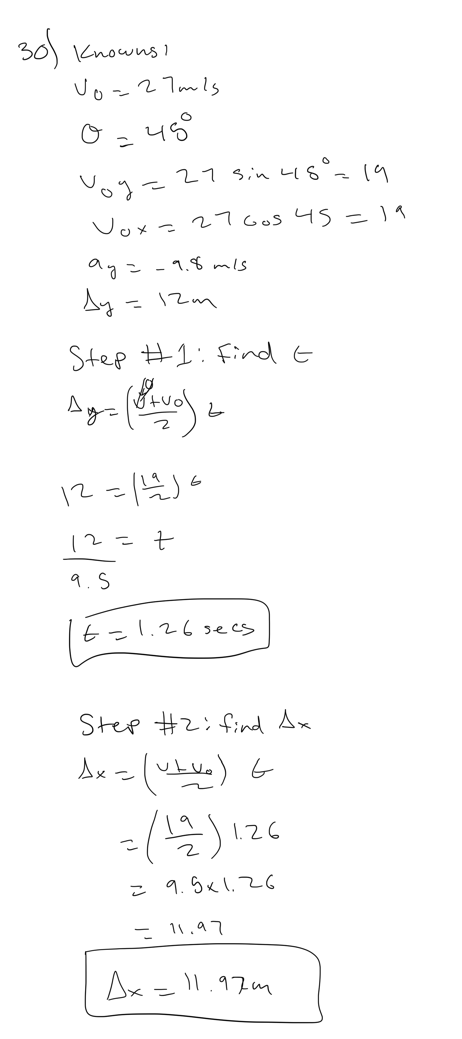 30) Knowns:
V₀ = 27m/s
θ = 45°
V₀y = 27 sin 45° = 19
V₀x = 27 cos 45 = 19
ay = -9.8 m/s
Δy = 12m
Step #1: Find t
Δy = (V+V₀/2) t
12 = (19/2) t
12/9.5 = t
t = 1.26 secs
Step #2: find Δx
Δx = (V+V₀/2) t
= (19/2) 1.26
= 9.5x1.26
= 11.97
Δx = 11.97m